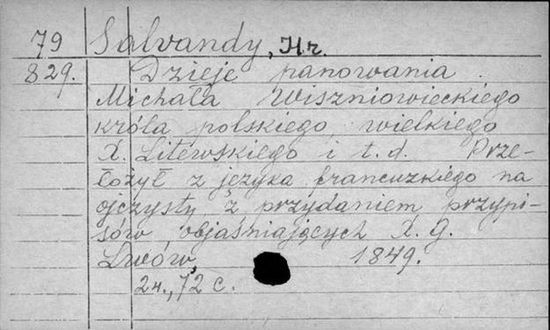 79 Salvandy, Hr.
829. Dzieje panowania
Michała Wiszniowieckiego
króla polskiego, wielkiego
X. Litewskiego i t. d. Prze-
łożył z języka francuzkiego na
ojczysty z przydaniem przypi-
sów objaśniających X. G.
Lwów, 1849.
24., 72 c.